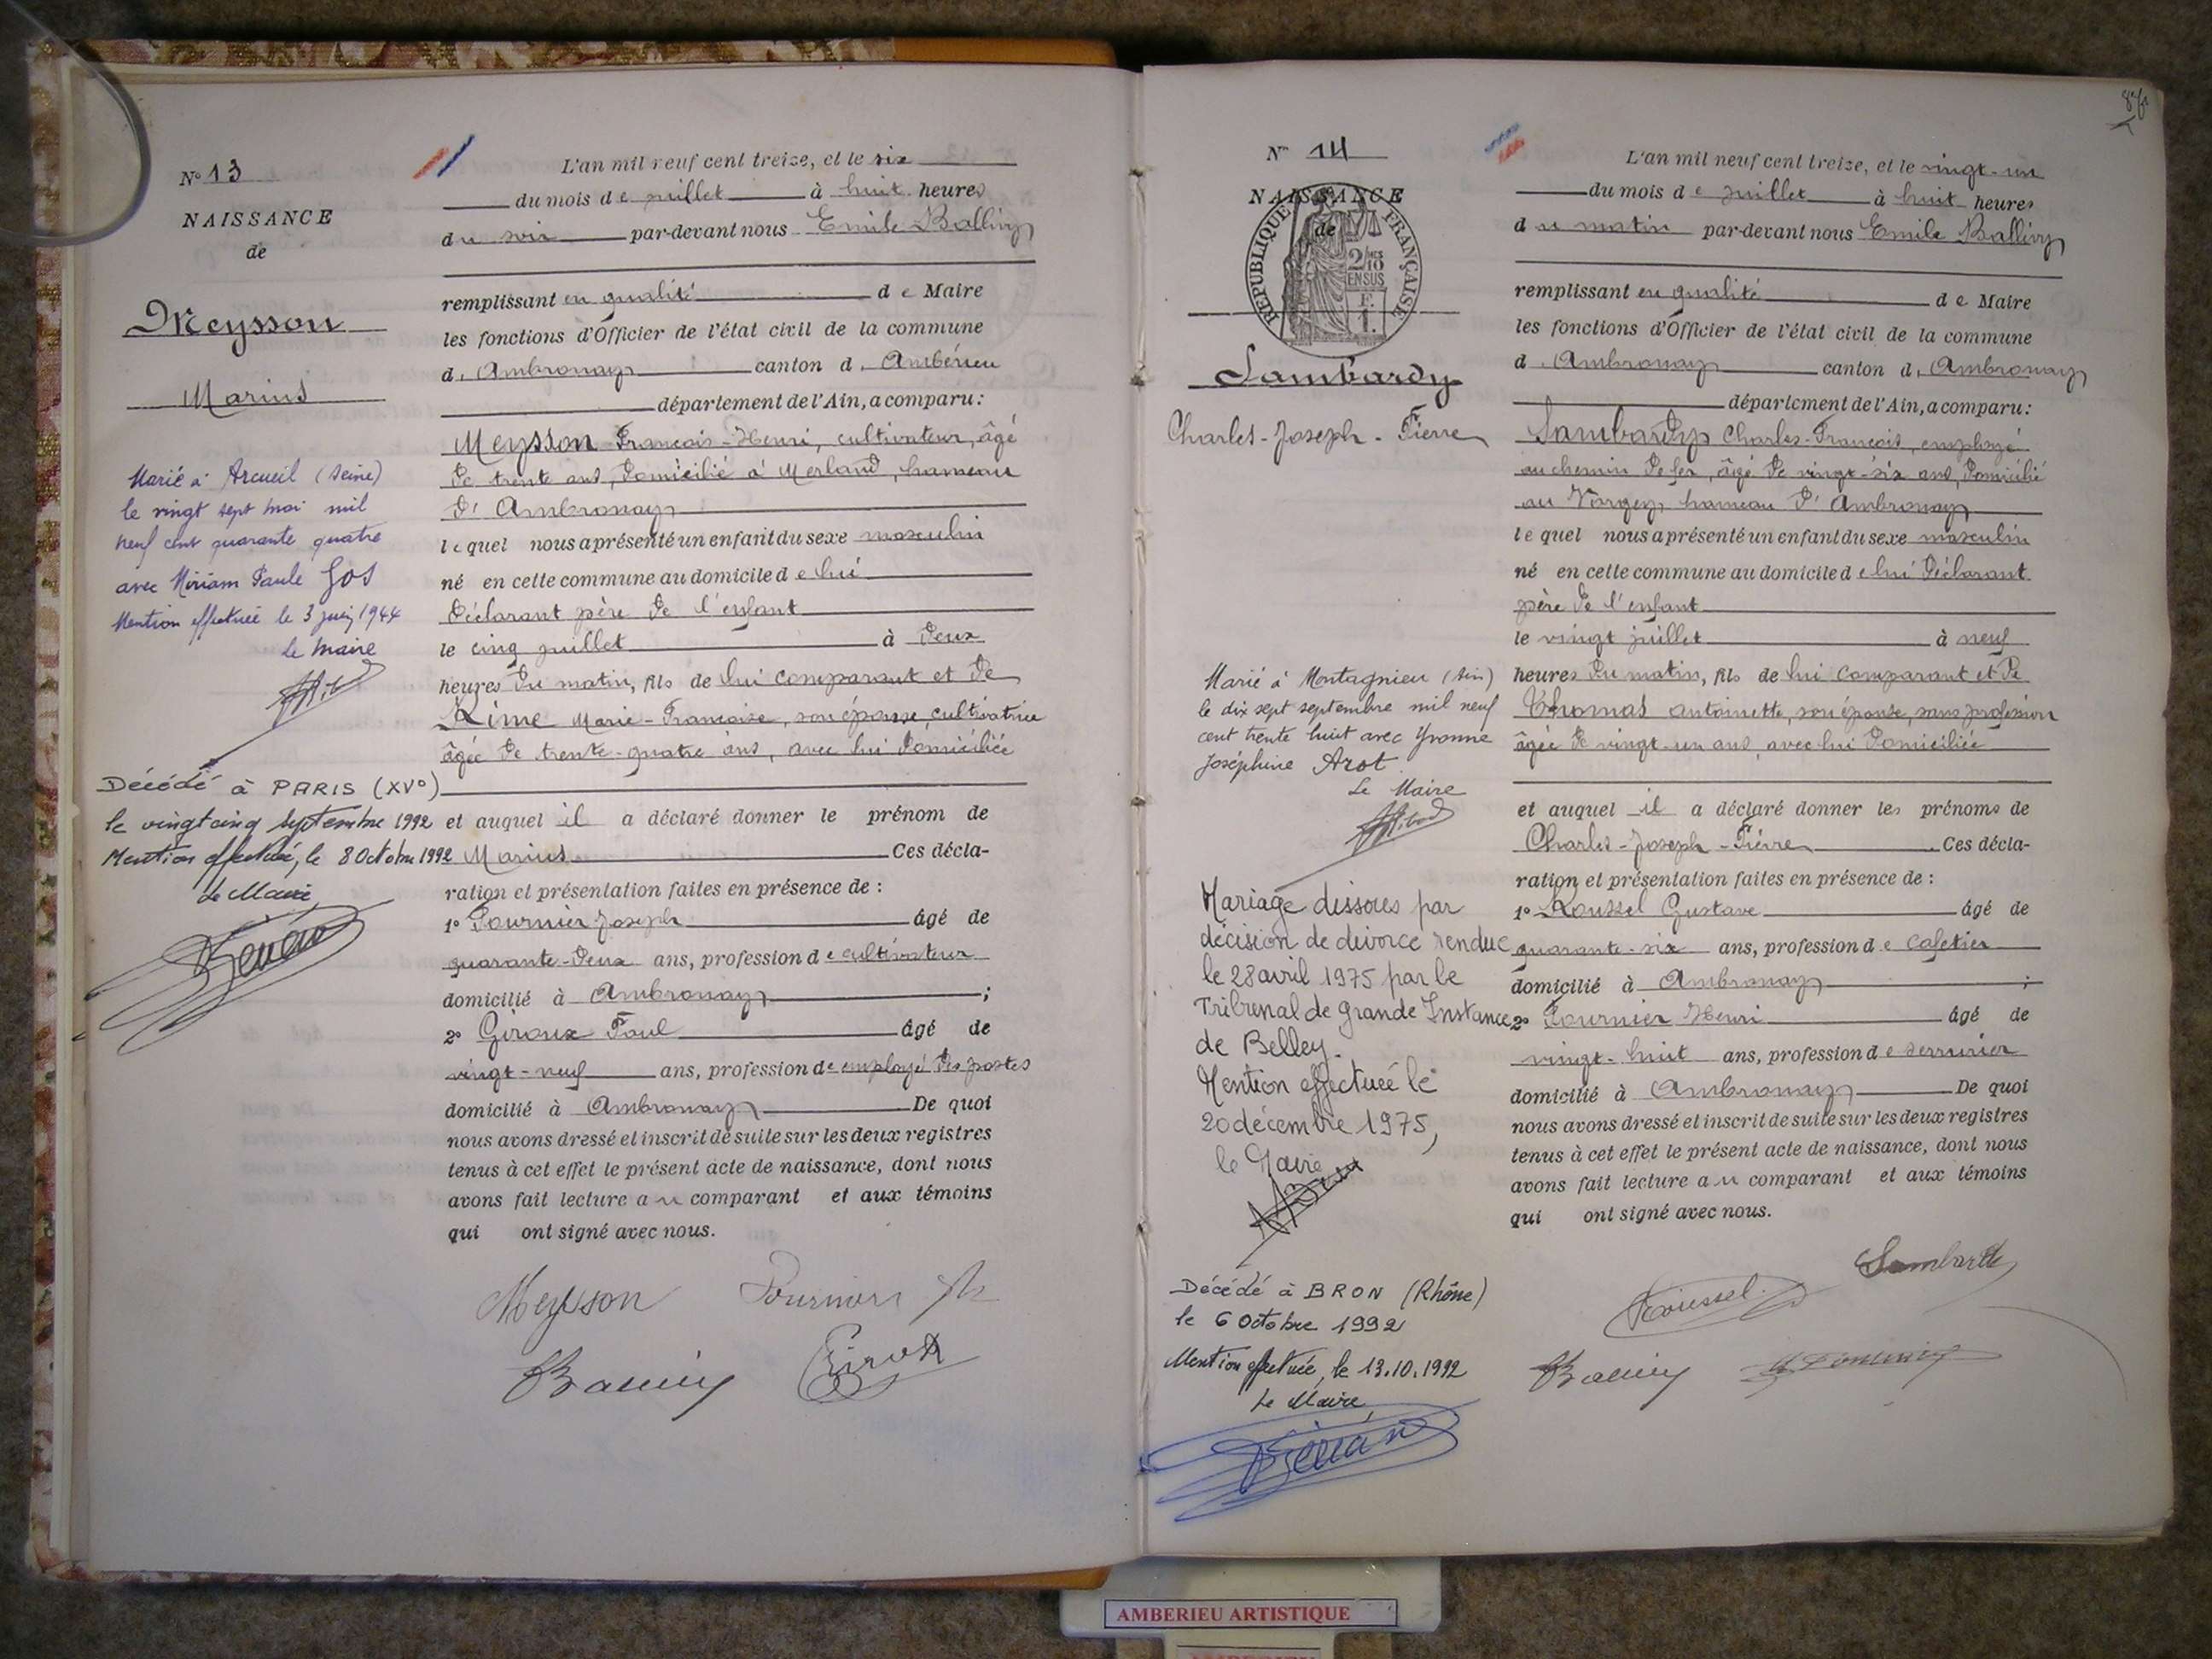 N° 13
NAISSANCE
de
Meysson
Marius
Marié à Arcueil (Seine)
le vingt sept mai mil
neuf cent quarante quatre
avec Miriam Paule Gos
Mention effectuée le 3 juin 1944
Le Maire
Décédé à PARIS (XV°)
le vingt cinq septembre 1992
Mention effectuée, le 8 Octobre 1992
Le Maire,
L'an mil neuf cent treize, et le six
du mois de juillet à huit heures
du soir par-devant nous Emile Ballivy
remplissant en qualité de Maire
les fonctions d'Officier de l'état civil de la commune
d'Ambronay canton d'Ambérieu
département de l'Ain, a comparu :
Meysson François-Henri, cultivateur, âgé
de trente ans, domicilié à Merland, hameau
d'Ambronay
lequel nous a présenté un enfant du sexe masculin
né en cette commune au domicile de lui
déclarant père de l'enfant
le cinq juillet à deux
heures du matin, fils de lui comparant et de
Rime Marie-Françoise, son épouse, cultivatrice
âgée de trente-quatre ans, avec lui domiciliée
et auquel il a déclaré donner le prénom de
Marius Ces décla-
ration et présentation faites en présence de :
1° Fournier Joseph âgé de
quarante-deux ans, profession de cultivateur
domicilié à Ambronay ;
2° Giroux Paul âgé de
vingt-neuf ans, profession d'employé des postes
domicilié à Ambronay De quoi
nous avons dressé et inscrit de suite sur les deux registres
tenus à cet effet le présent acte de naissance, dont nous
avons fait lecture au comparant et aux témoins
qui ont signé avec nous.
Meysson Fournier
Ballivy Giroux
N° 14
NAISSANCE
de
REPUBLIQUE FRANÇAISE
2/10
EN SUS
F.
1.
Lambardy
Charles-Joseph-Pierre
Marié à Montagnieu (Ain)
le dix sept septembre mil neuf
cent trente huit avec Yvonne
Joséphine Arot
Le Maire
Mariage dissous par
décision de divorce rendue
le 28 avril 1975 par le
Tribunal de Grande Instance
de Belley.
Mention effectuée le
20 décembre 1975,
le Maire
Décédé à BRON (Rhône)
le 6 Octobre 1992
Mention effectuée, le 13.10.1992
Le Maire,
L'an mil neuf cent treize, et le vingt-un
du mois de juillet à huit heures
du matin par-devant nous Emile Ballivy
remplissant en qualité de Maire
les fonctions d'Officier de l'état civil de la commune
d'Ambronay canton d'Ambronay
département de l'Ain, a comparu :
Lambardy Charles-François, employé
au chemin de fer, âgé de vingt-six ans, domicilié
au Vorgey, hameau d'Ambronay
lequel nous a présenté un enfant du sexe masculin
né en cette commune au domicile de lui déclarant
père de l'enfant
le vingt juillet à neuf
heures du matin, fils de lui comparant et de
Thomas Antoinette, son épouse, sans profession
âgée de vingt-un ans, avec lui domiciliée
et auquel il a déclaré donner les prénoms de
Charles-Joseph-Pierre Ces décla-
ration et présentation faites en présence de :
1° Roussel Gustave âgé de
quarante-six ans, profession de cafetier
domicilié à Ambronay ;
2° Fournier Henri âgé de
vingt-huit ans, profession de serrurier
domicilié à Ambronay De quoi
nous avons dressé et inscrit de suite sur les deux registres
tenus à cet effet le présent acte de naissance, dont nous
avons fait lecture au comparant et aux témoins
qui ont signé avec nous.
Lambardy
Roussel
Ballivy H Fournier
AMBERIEU ARTISTIQUE